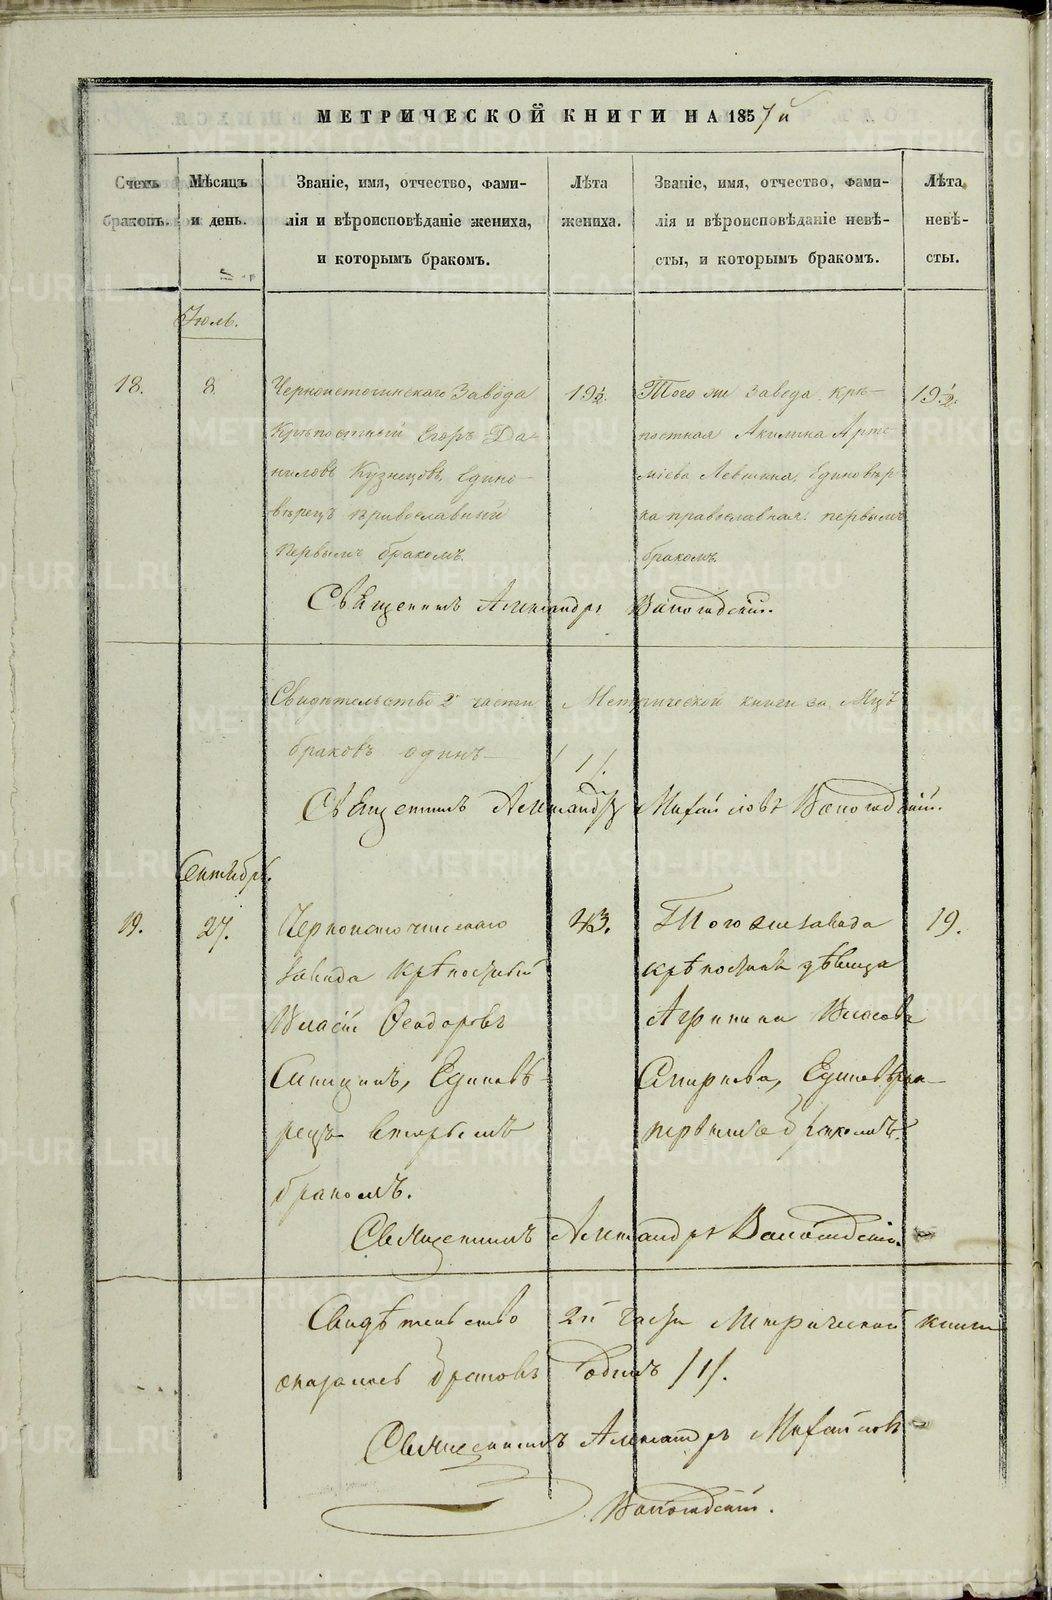 МЕТРИЧЕСКОЙ КНИГИ НА 1857й
Счетъ
браковъ.
Мѣсяцъ
и день.
Званіе, имя, отчество, фами-
лія и вѣроисповѣданіе жениха,
и которымъ бракомъ.
Лѣта
жениха.
Званіе, имя, отчество, фами-
лія и вѣроисповѣданіе невѣ-
сты, и которымъ бракомъ.
Лѣта
невѣ-
сты.
Іюль.
18.
8
Черноисточинскаго Завода
Крѣпостный Егоръ Да-
ниловъ Кузнецовъ, Едино-
вѣрецъ православный
первымъ бракомъ.
19½.
Того же Завода крѣ-
постная Акилина Арте-
міева Левшина, Единовѣр
ка православная. первымъ
бракомъ.
19½.
Священникъ Александръ
Свидѣтельство 2й части Метрической книги за
браковъ одинъ /1/.
Священникъ Александръ Михайловъ
Сентябрь.
19.
27.
Черноисточинскаго
завода крѣпостный
Власій Ѳеодоровъ
Синицинъ, Единовѣ-
рецъ вторымъ
бракомъ.
43.
Того же завода
крѣпостная дѣвица
Агрипина Власова
Смирнова, Единовѣрка
первымъ бракомъ.
19.
Священникъ Александръ
Свидѣтельство 2й части Метрической книги
оказалось браковъ одинъ /1/.
Священникъ Александръ Михайловъ
METRIKI.GASO-URAL.RU